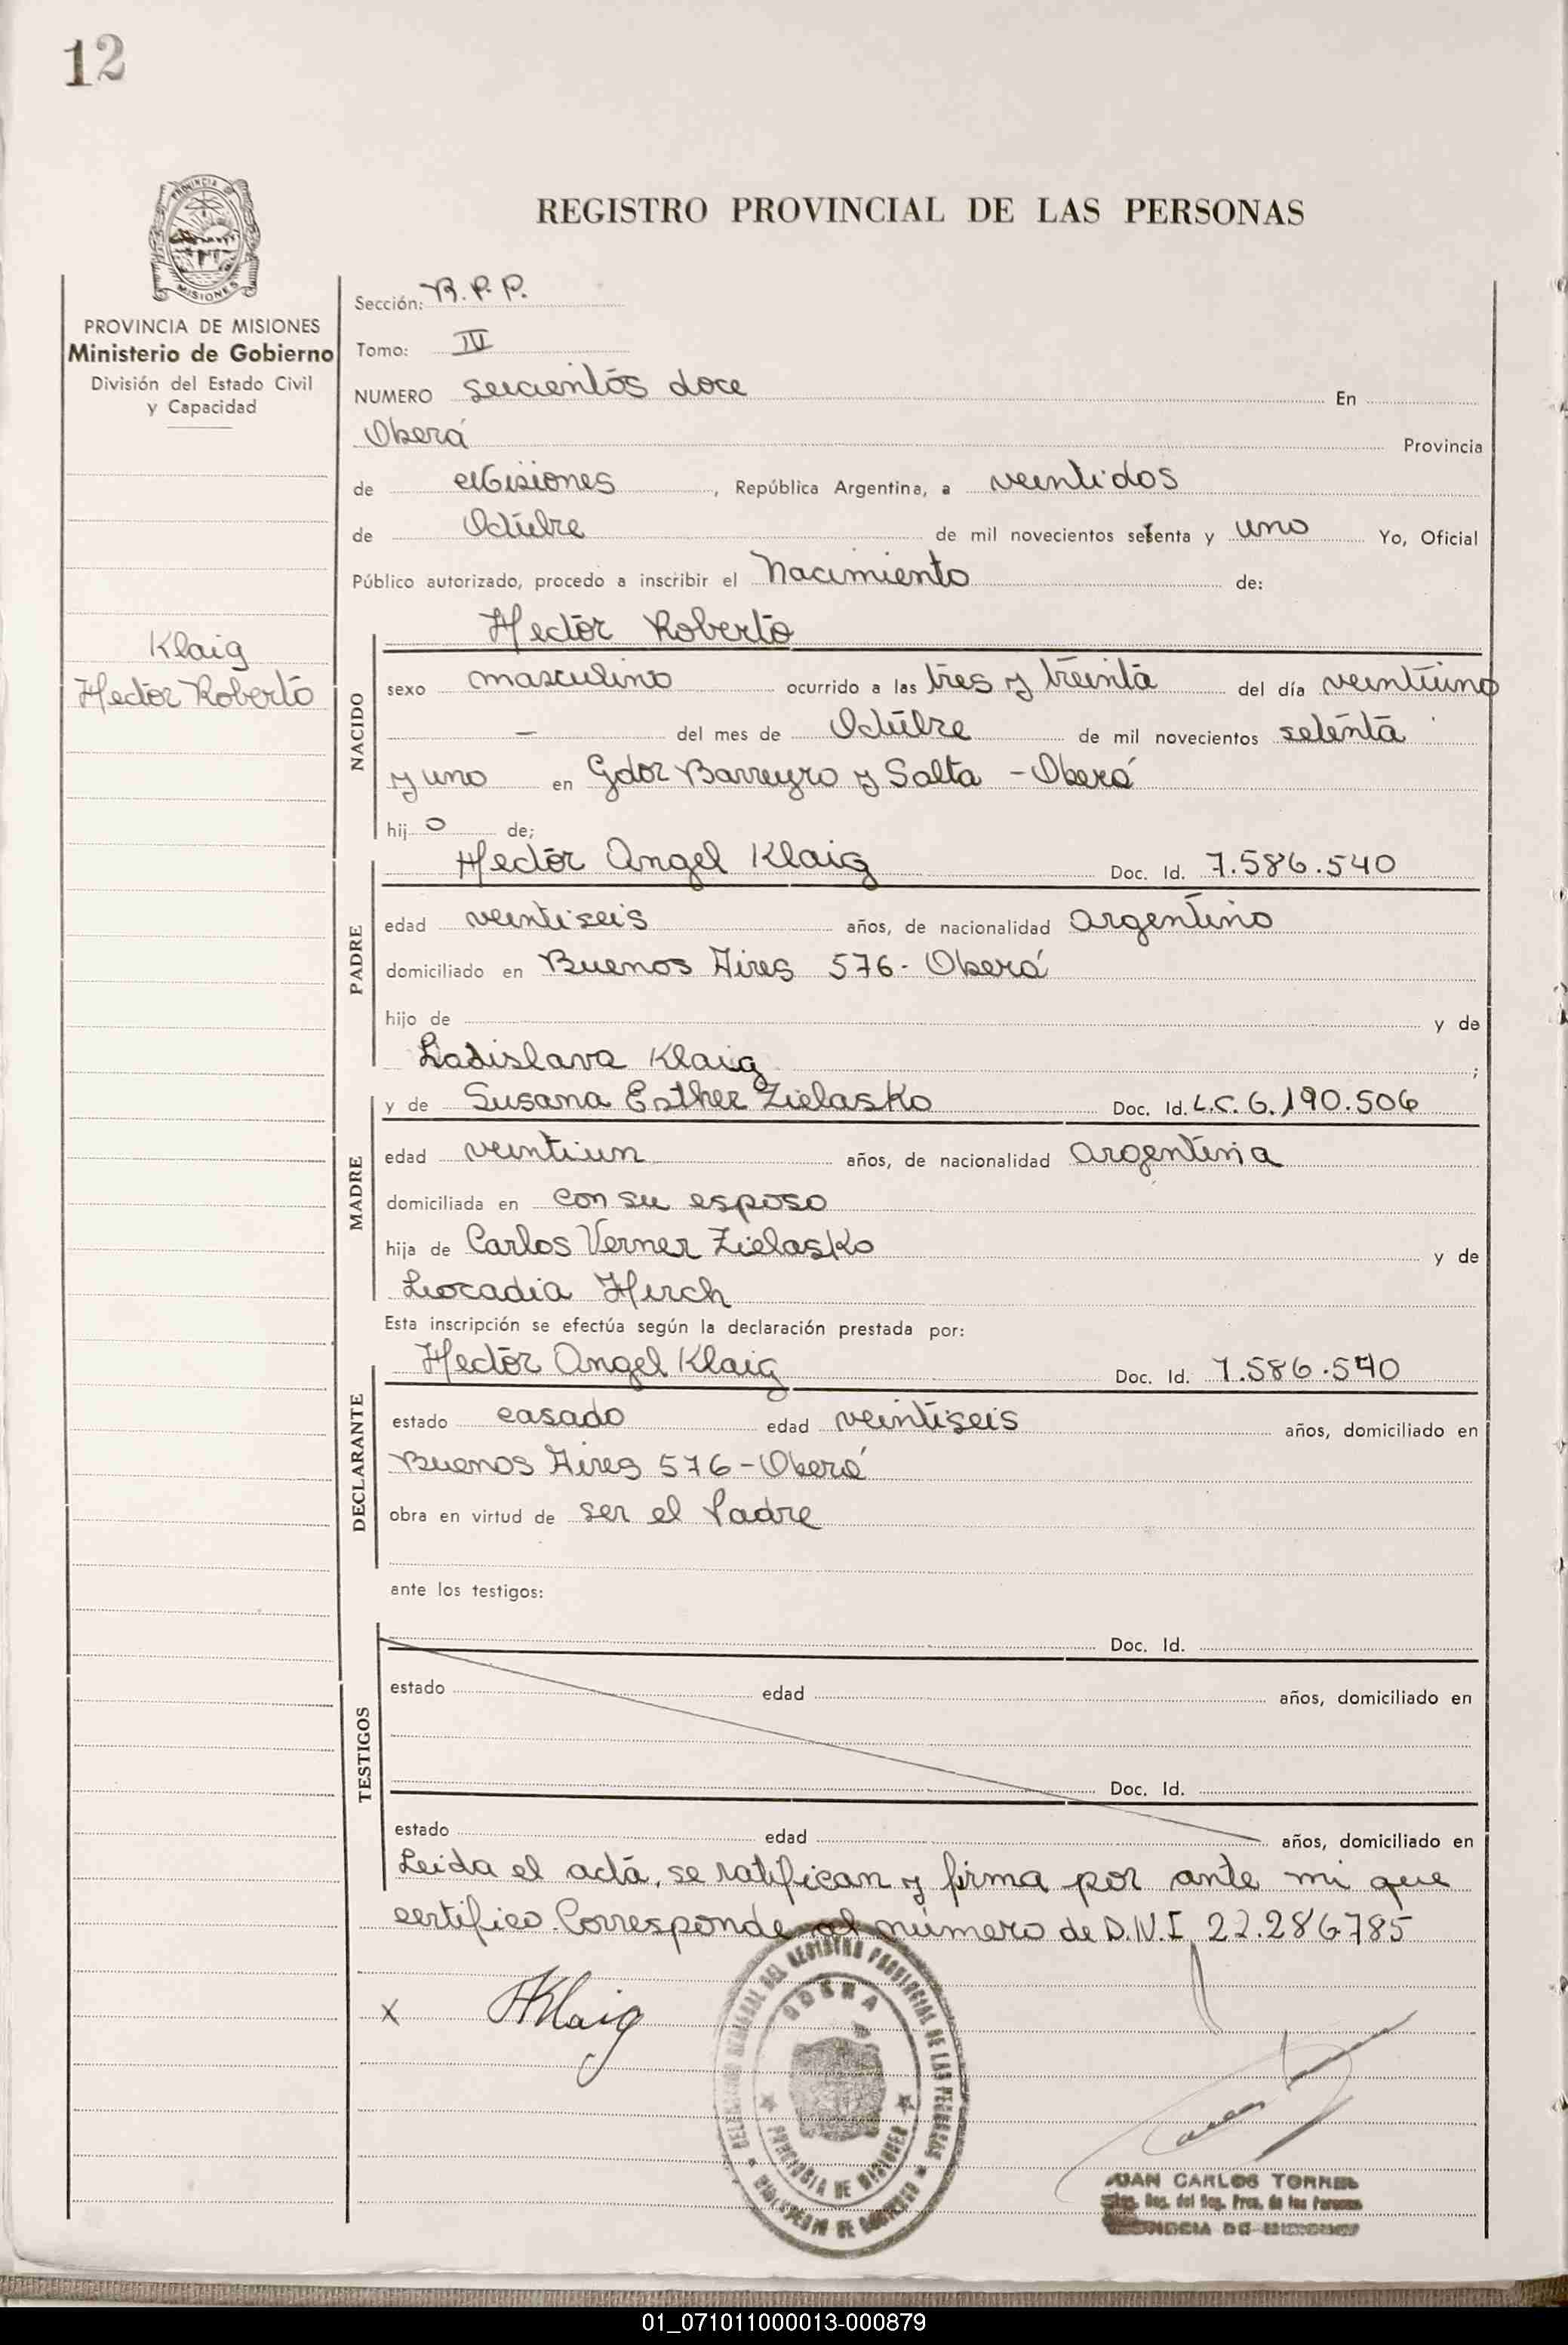 12
REGISTRO PROVINCIAL DE LAS PERSONAS
PROVINCIA DE MISIONES
Ministerio de Gobierno
División del Estado Civil
y Capacidad
Klaig
Hector Roberto
Sección: R.P.P.
Tomo: IV
NUMERO seiscientos doce En
Oberá Provincia
de Misiones, República Argentina, a veintidos
de Octubre de mil novecientos setenta y uno Yo, Oficial
Público autorizado, procedo a inscribir el Nacimiento de:
NACIDO
Hector Roberto
sexo masculino ocurrido a las tres y treinta del día veintiuno
— del mes de Octubre de mil novecientos setenta
y uno en Gdor Barreyro y Salta - Oberá
hij o de;
PADRE
Hector Angel Klaig Doc. Id. 7.586.540
edad veintiseis años, de nacionalidad argentino
domiciliado en Buenos Aires 576- Oberá
hijo de y de
Ladislava Klaig ;
MADRE
y de Susana Esther Zielasko Doc. Id. L.C. 6.190.506
edad veintiun años, de nacionalidad argentina
domiciliada en con su esposo
hija de Carlos Verner Zielasko y de
Leocadia Hirch
Esta inscripción se efectúa según la declaración prestada por:
DECLARANTE
Hector Angel Klaig Doc. Id. 7.586.540
estado casado edad veintiseis años, domiciliado en
Buenos Aires 576-Oberá
obra en virtud de ser el Padre
ante los testigos:
TESTIGOS
Doc. Id.
estado edad años, domiciliado en
Doc. Id.
estado edad años, domiciliado en
Leida el acta, se ratifican y firma por ante mi que
certifico. Corresponde al número de D.N.I. 22.286.785
x HKlaig
OBERA
PROVINCIA DE MISIONES
JUAN CARLOS TORRES
del Reg. Prov. de las Personas
PROVINCIA DE MISIONES
01_071011000013-000879